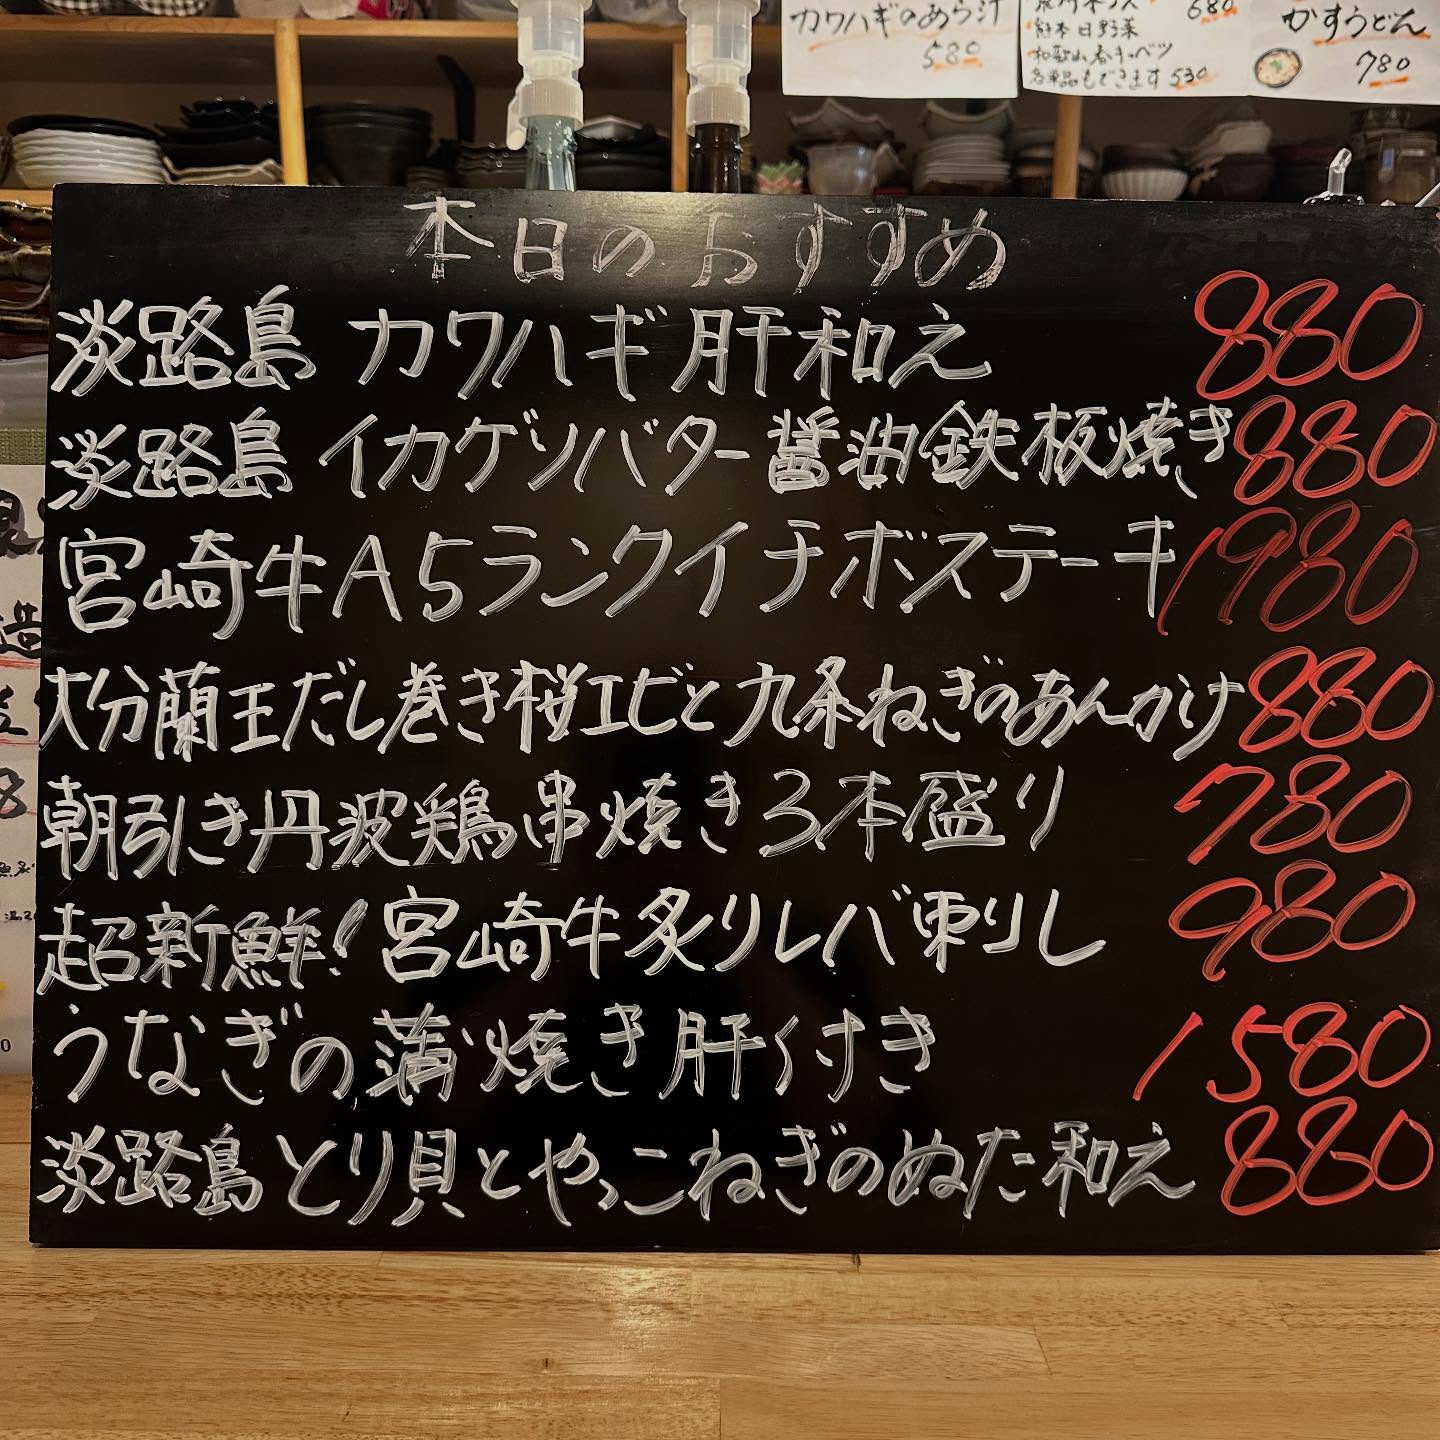 カワハギのあら汁
580
680
熊本日野菜
和歌山春キャベツ
各単品もできます 530
かすうどん
780
本日のおすすめ
淡路島 カワハギ肝和え 880
淡路島 イカゲソバター醤油鉄板焼き 880
宮崎牛A5ランクイチボステーキ 1980
大分蘭王だし巻き桜エビと九条ねぎのあんかけ 880
朝引き丹波鶏串焼き3本盛り 780
超新鮮！宮崎牛炙りレバ刺し 980
うなぎの蒲焼き肝付き 1580
淡路島とり貝とやっこねぎのぬた和え 880